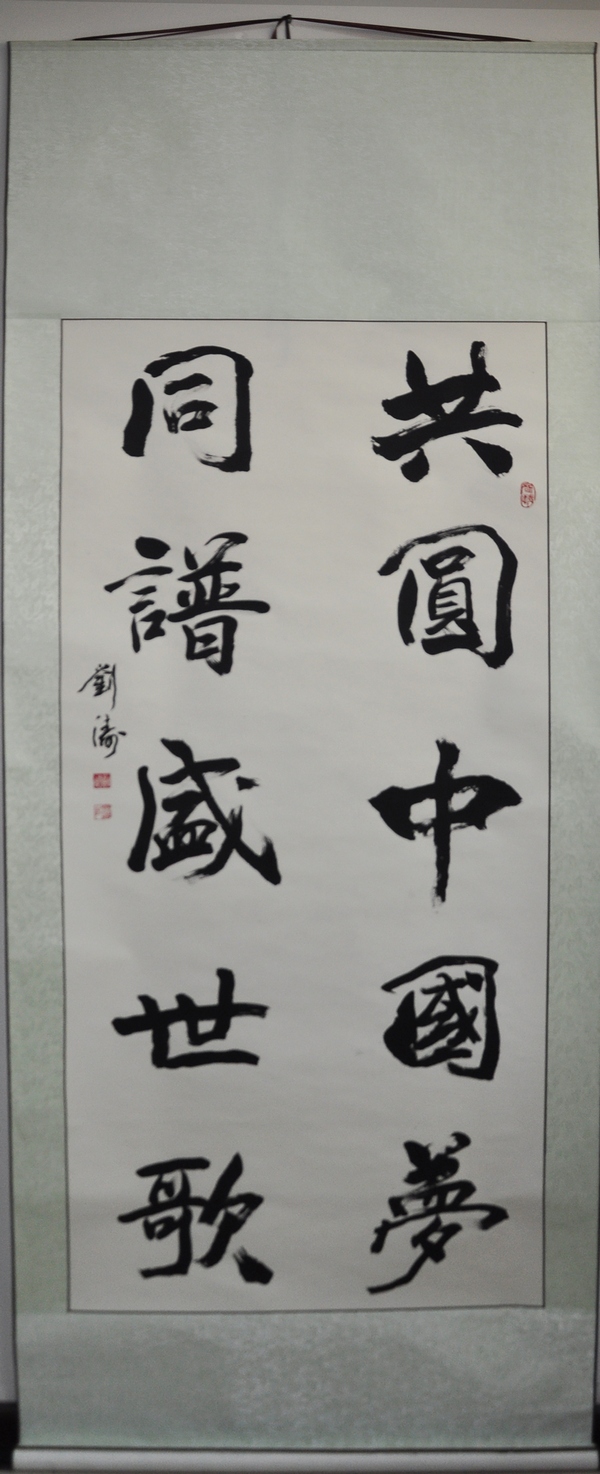 共圓中國夢
同譜盛世歌
劉濤